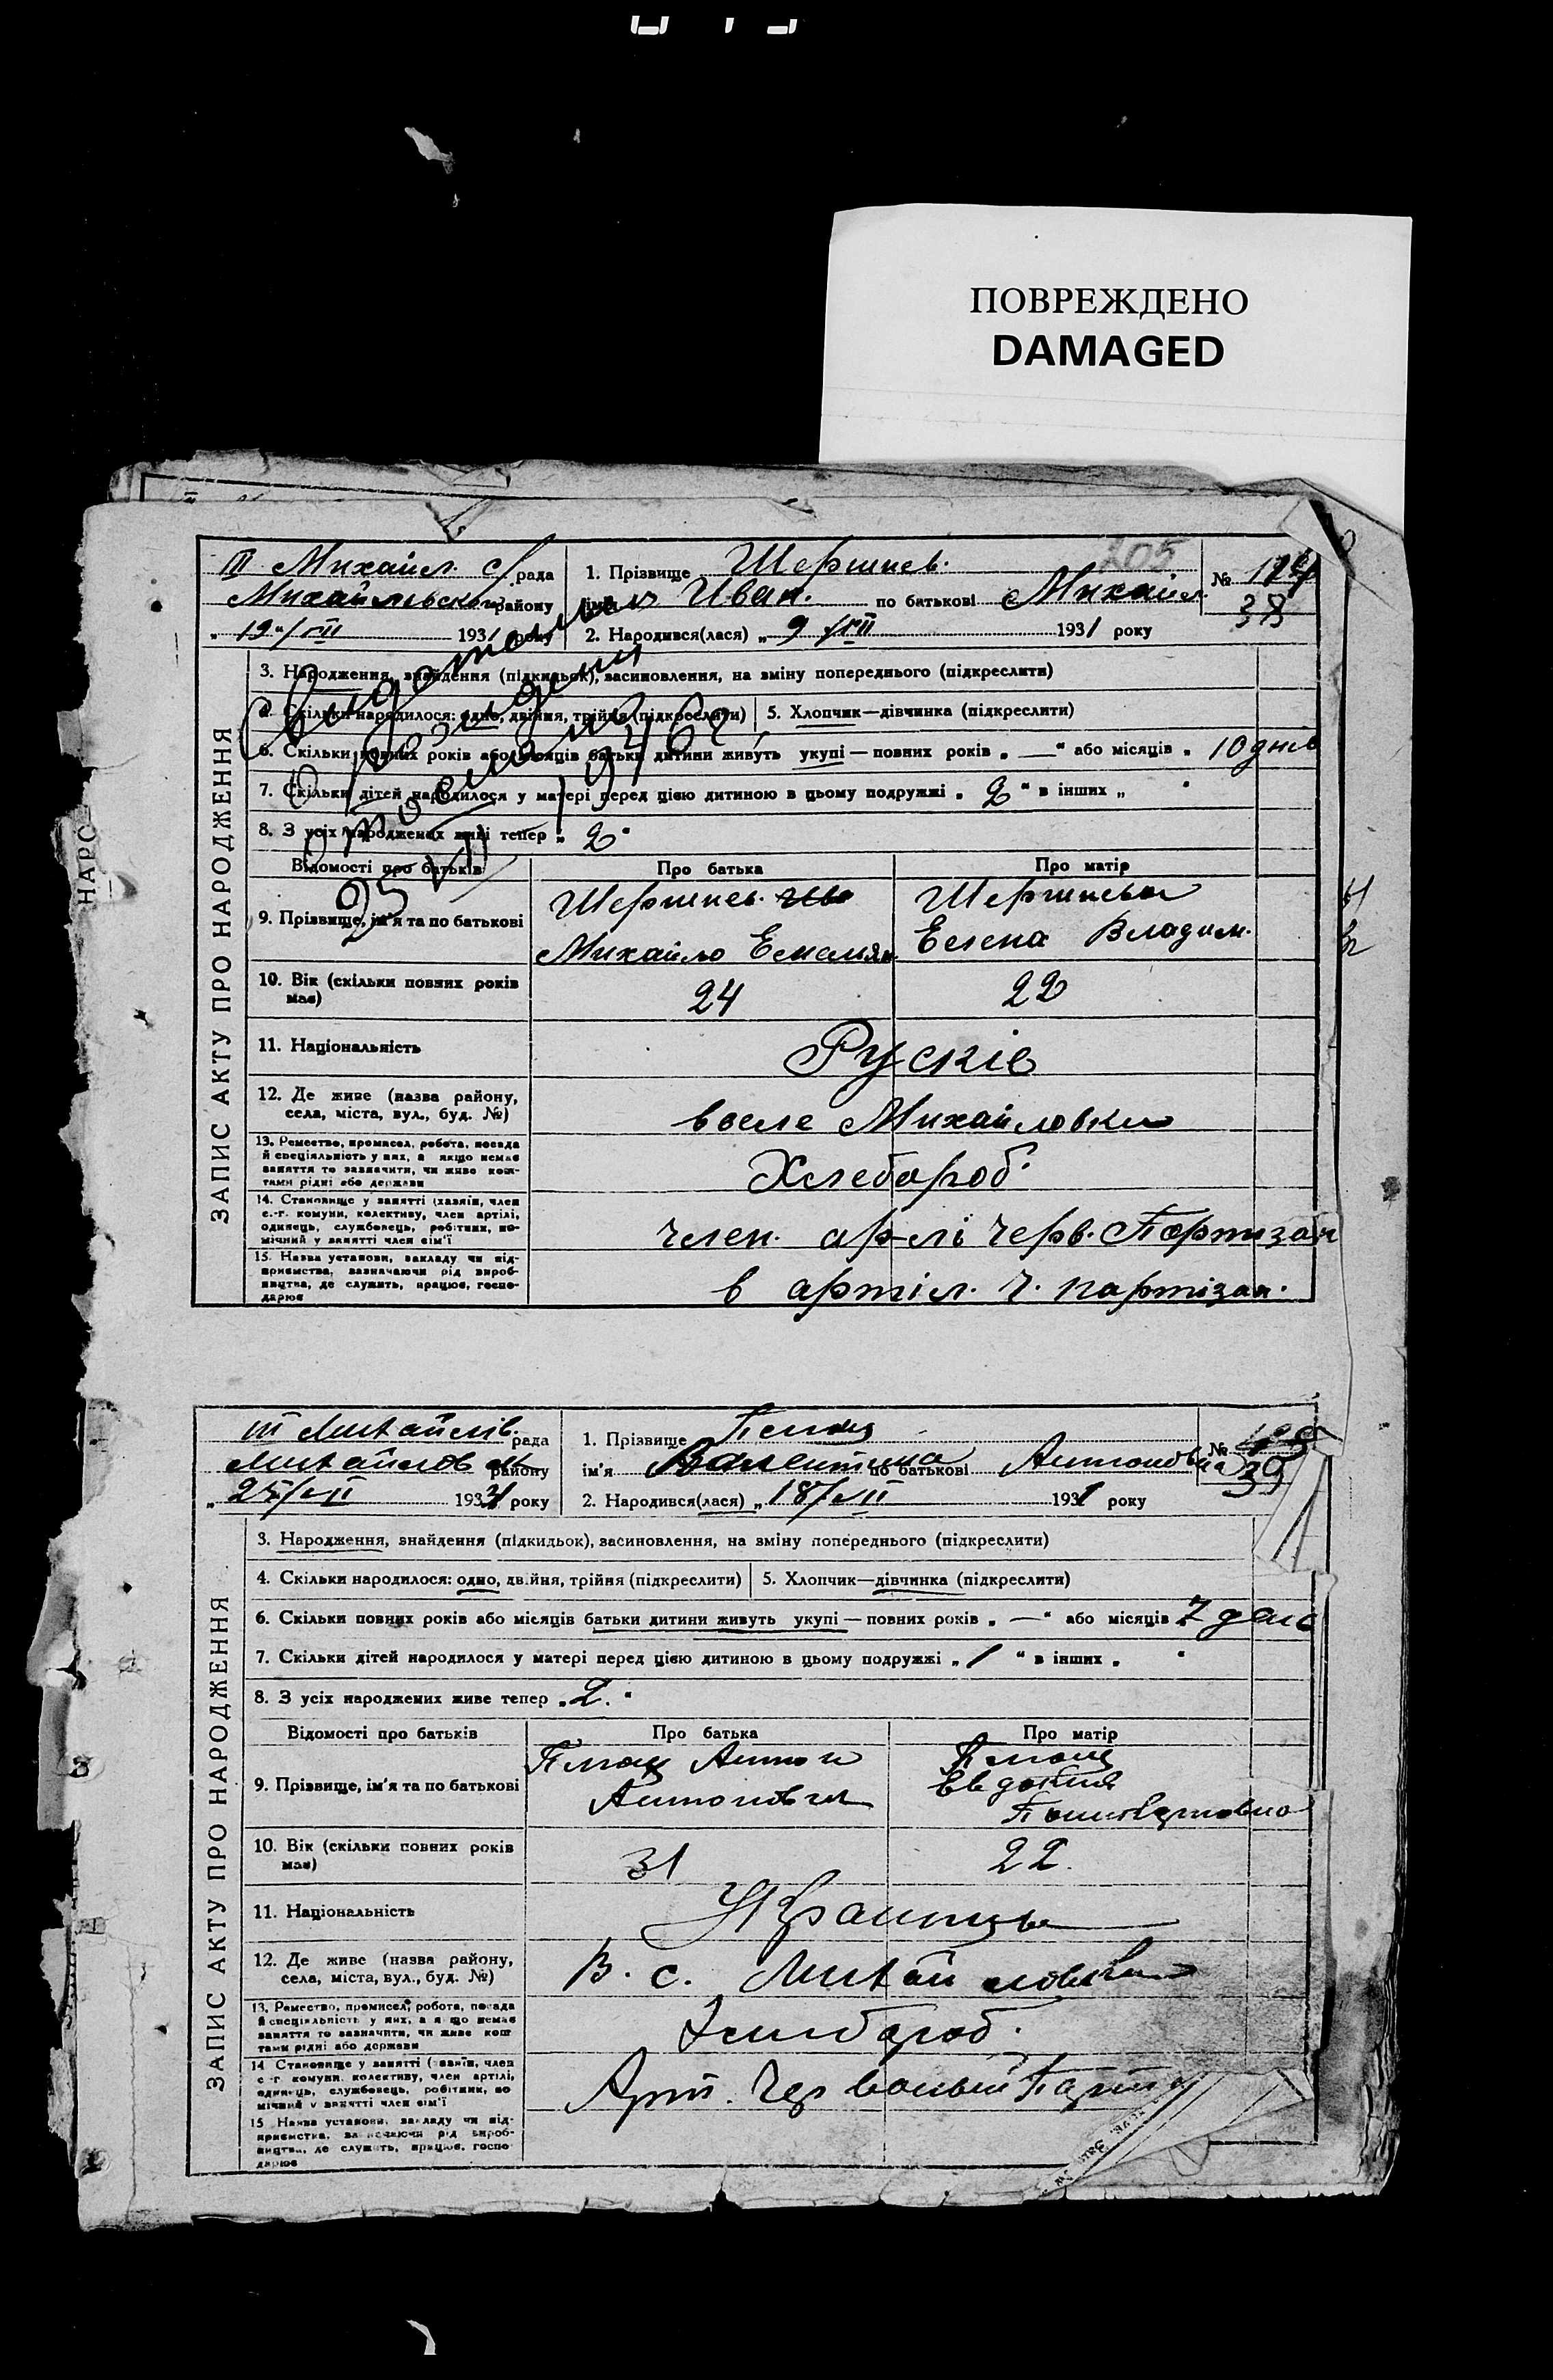 ПОВРЕЖДЕНО
DAMAGED
НАРО
205
ЗАПИС АКТУ ПРО НАРОДЖЕННЯ
III Михайл. с/рада
Михайлівського району
"12"/VII 1931 року
1. Прізвище Шершнев.
ім'я Иван. по батькові Михайл.
№ 124
38
2. Народився(лася) „ 9 /VII 1931 року
3. Народження, знайдення (підкидьок), засиновлення, на зміну попереднього (підкреслити)
4. Скільки народилося: одно, двійня, трійня (підкреслити)
5. Хлопчик—дівчинка (підкреслити)
6. Скільки повних років або місяців батьки дитини живуть укупі — повних років „ — “ або місяців „ 10 днів
7. Скільки дітей народилося у матері перед цією дитиною в цьому подружжі „ 2 “ в інших „ “
8. З усіх народжених живі тепер „ 2 “
Відомості про батьків Про батька Про матір
9. Прізвище, ім'я та по батькові
Шершнев.
Михайло Емельян.
Шершнева
Елена Владим.
10. Вік (скільки повних років має) 24 22
11. Національність Рускіе
12. Де живе (назва району, села, міста, вул., буд. №) в селе Михайловки
13. Ремество, промисел, робота, посада й спеціяльність у них, а якщо немає заняття то зазначити, чи живе коштами рідні або держави Хлебороб.
14. Становище у занятті (хазяїн, член с.-г. комуни, колективу, член артілі, одинець, службовець, робітник, помічний у занятті член сім'ї член. ар-лі Черв. Партизан
15. Назва установи, закладу чи підприємства, зазначаючи рід виробництва, де служить, працює, господарює в артіл. Ч. партізан.
ЗАПИС АКТУ ПРО НАРОДЖЕННЯ
III Михайлів. рада
Михайловськ району
„ 25/VII 1931 року
1. Прізвище
ім'я Валентина по батькові Антоновна
№
39
2. Народився(лася) „ 18/VII 1931 року
3. Народження, знайдення (підкидьок), засиновлення, на зміну попереднього (підкреслити)
4. Скільки народилося: одно, двійня, трійня (підкреслити)
5. Хлопчик—дівчинка (підкреслити)
6. Скільки повних років або місяців батьки дитини живуть укупі — повних років „ — “ або місяців 7 день
7. Скільки дітей народилося у матері перед цією дитиною в цьому подружжі „ 1 “ в інших „ “
8. З усіх народжених живе тепер „ 2. “
Відомості про батьків Про батька Про матір
9. Прізвище, ім'я та по батькові
Антон
Антонович
Евдокия
10. Вік (скільки повних років має) 31 22.
11. Національність Украинцы
12. Де живе (назва району, села, міста, вул., буд. №) В. с. Михайловка
13. Ремество, промисел, робота, посада й спеціяльність у них, а якщо немає заняття то зазначити, чи живе коштами рідні або держави Хлибороб.
14 Становище у занятті (хазяїн, член с.-г. комуни, колективу, член артілі, одинець, службовець, робітник, помічний у занятті член сім'ї Арт. Червоный
15 Назва установи, закладу чи підприємства, зазначаючи рід виробництва, де служить, працює, господарює